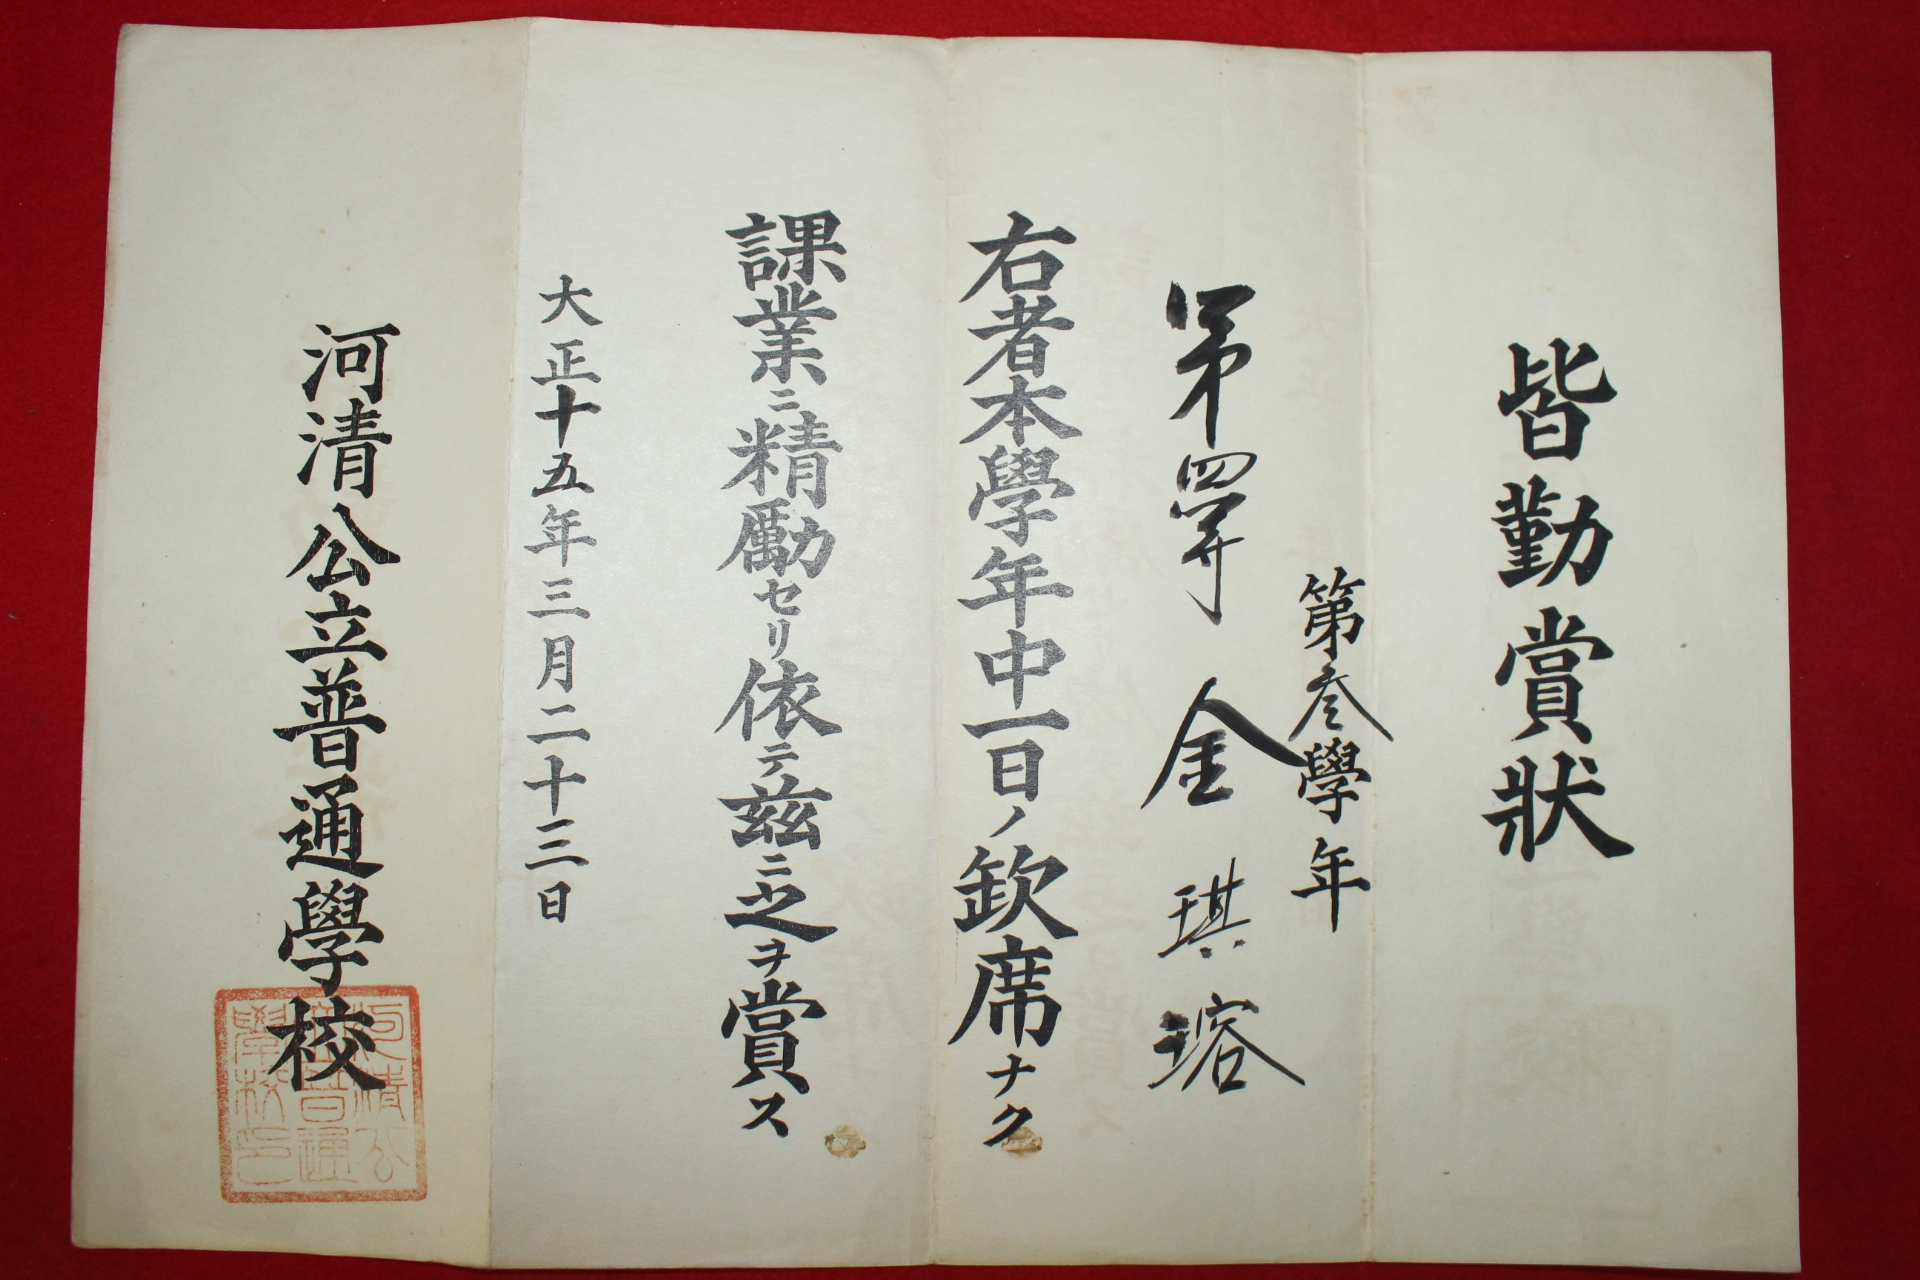 皆勤賞狀
第叁學年
第四學年 金琪瑢
右者本學年中一日ノ欽席ナク
課業ニ精勵セリ依テ玆ニ之ヲ賞ス
大正十五年三月二十三日
河清公立普通學校
河清公
立普通
學校印